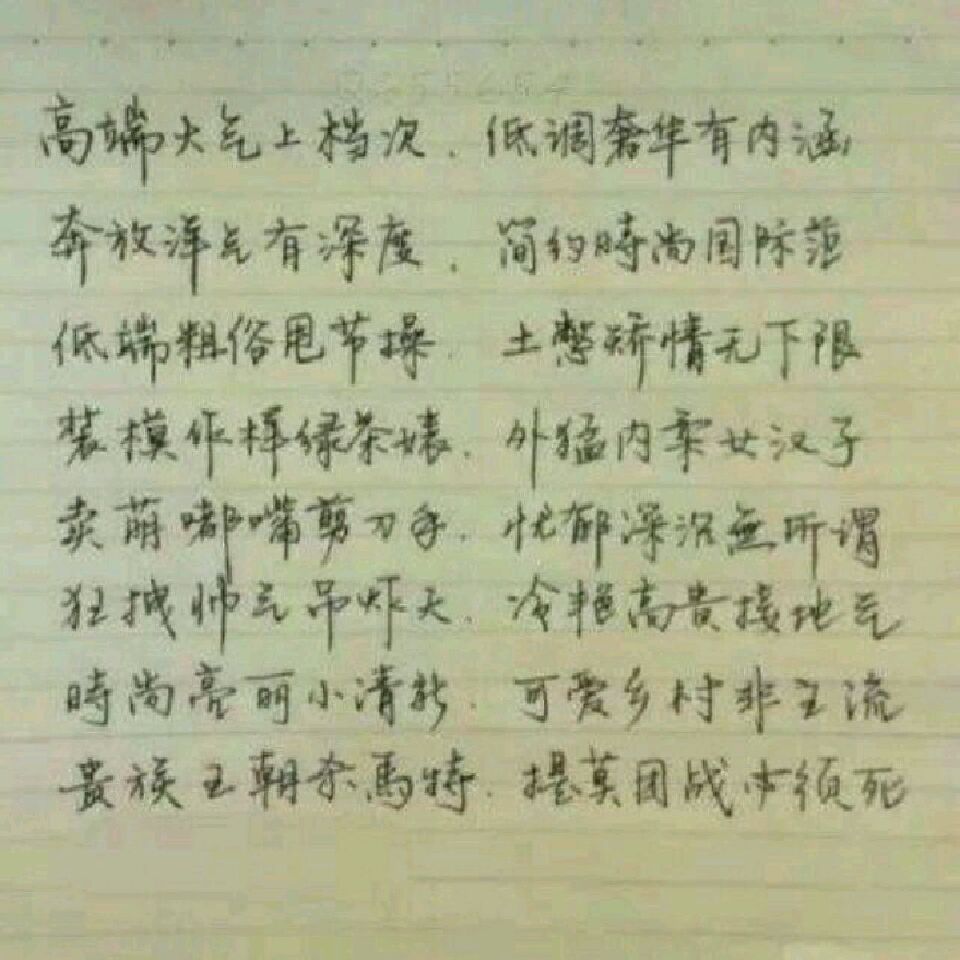 高端大气上档次．低调奢华有内涵
奔放洋气有深度．简约時尚国际范
低端粗俗甩节操．土憋矫情无下限
装模作样绿茶婊．外猛内柔女汉子
卖萌嘟嘴剪刀手．忧郁深沉無所谓
狂拽帅气吊炸天．冷艳高贵接地气
時尚亮丽小清新．可爱乡村非主流
贵族王朝杀馬特．提莫团战必须死